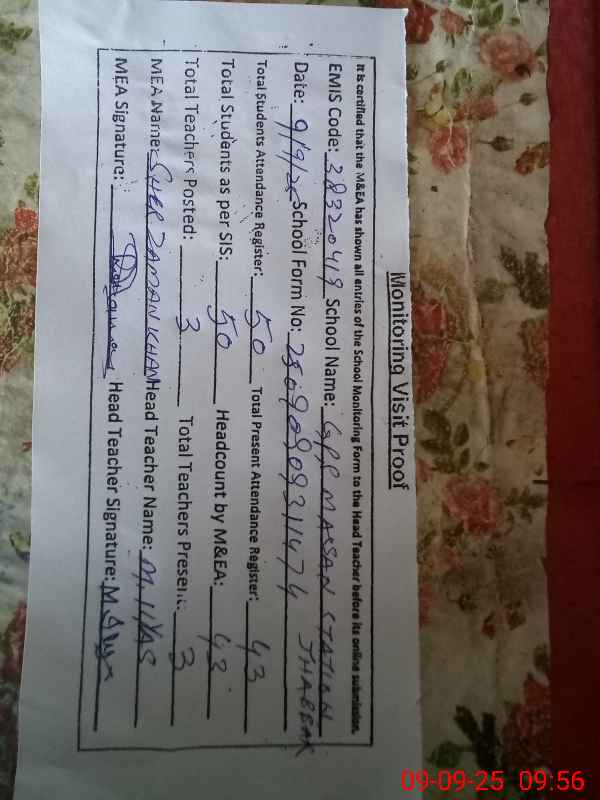 Monitoring Visit Proof
It is certified that the M&EA has shown all entries of the School Monitoring Form to the Head Teacher before its online submission.
EMIS Code: 38320419 School Name: GPS MASSAN STATION
JHABBAR
Date: 9/9/25 School Form No: 25090909311474
Total Students Attendance Register: 50 Total Present Attendance Register: 43
Total Students as per SIS: 50 Headcount by M&EA: 43
Total Teachers Posted: 3 Total Teachers Present: 3
MEA Name: SHER ZAMAN KHAN Head Teacher Name: M. ILYAS
MEA Signature: Head Teacher Signature:
09-09-25 09:56